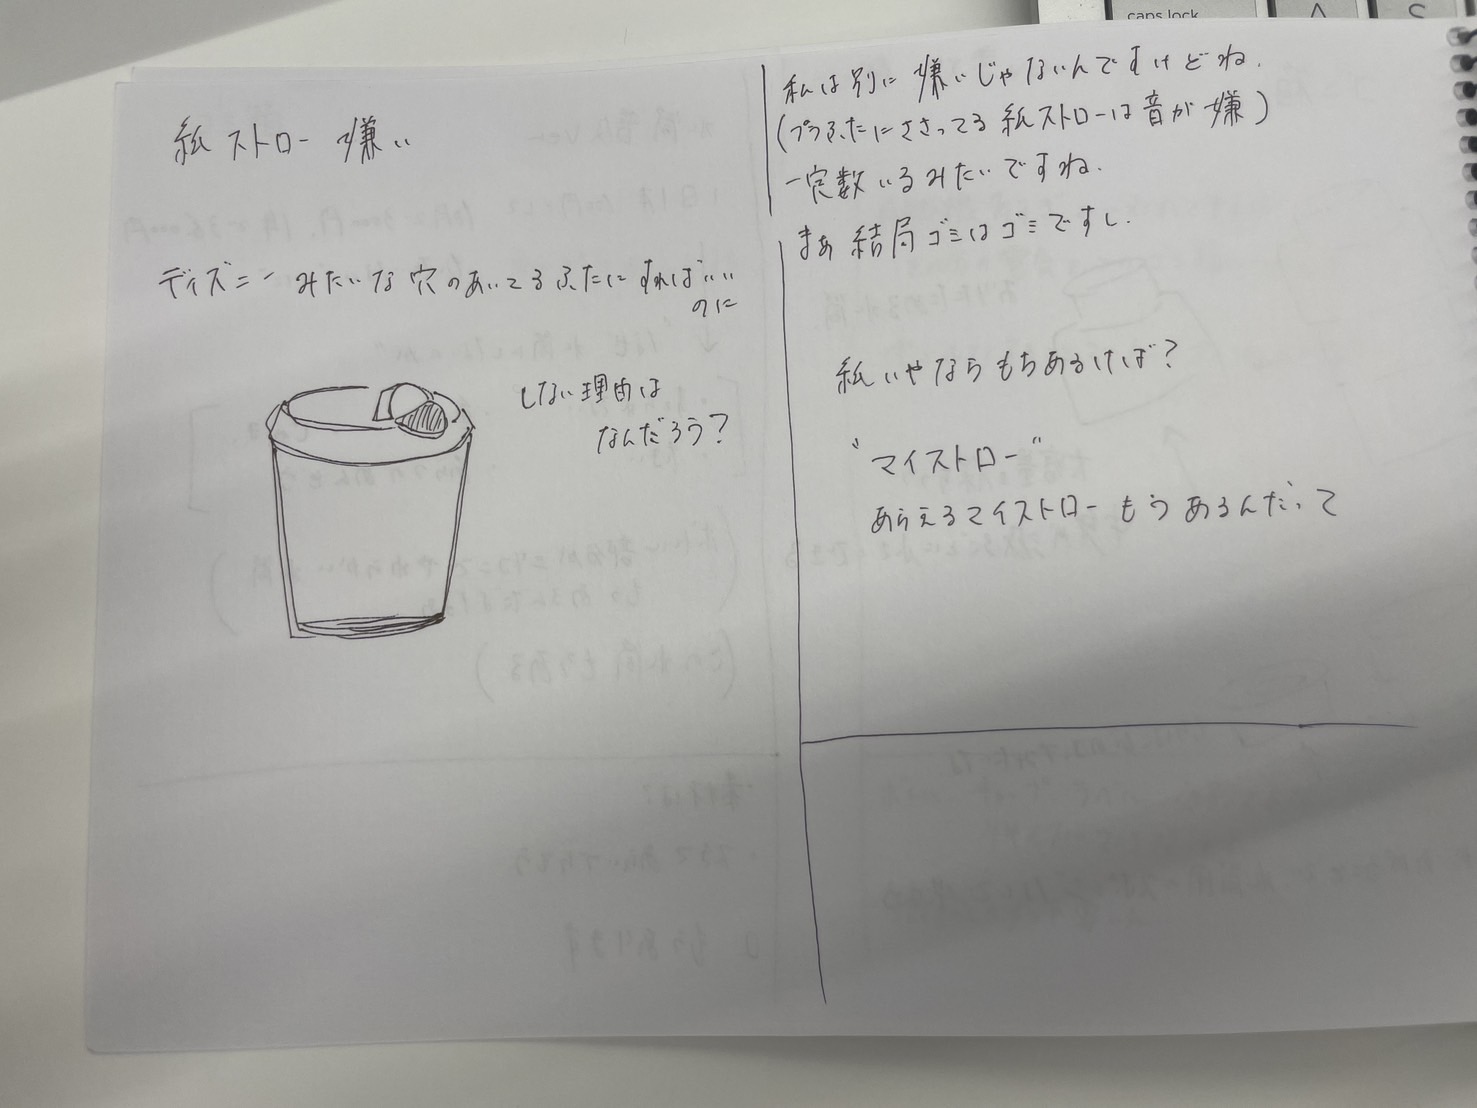 紙ストロー嫌い
ディズニーみたいな穴のあいてるふたにすればいい
のに
しない理由は
なんだろう?
私は別に嫌いじゃないんですけどね.
(プラふたにささってる紙ストローは音が嫌)
一定数いるみたいですね.
まぁ結局ゴミはゴミですし.
紙いやならもちあるけば?
"マイストロー"
あらえるマイストローもうあるんだって
caps lock
A